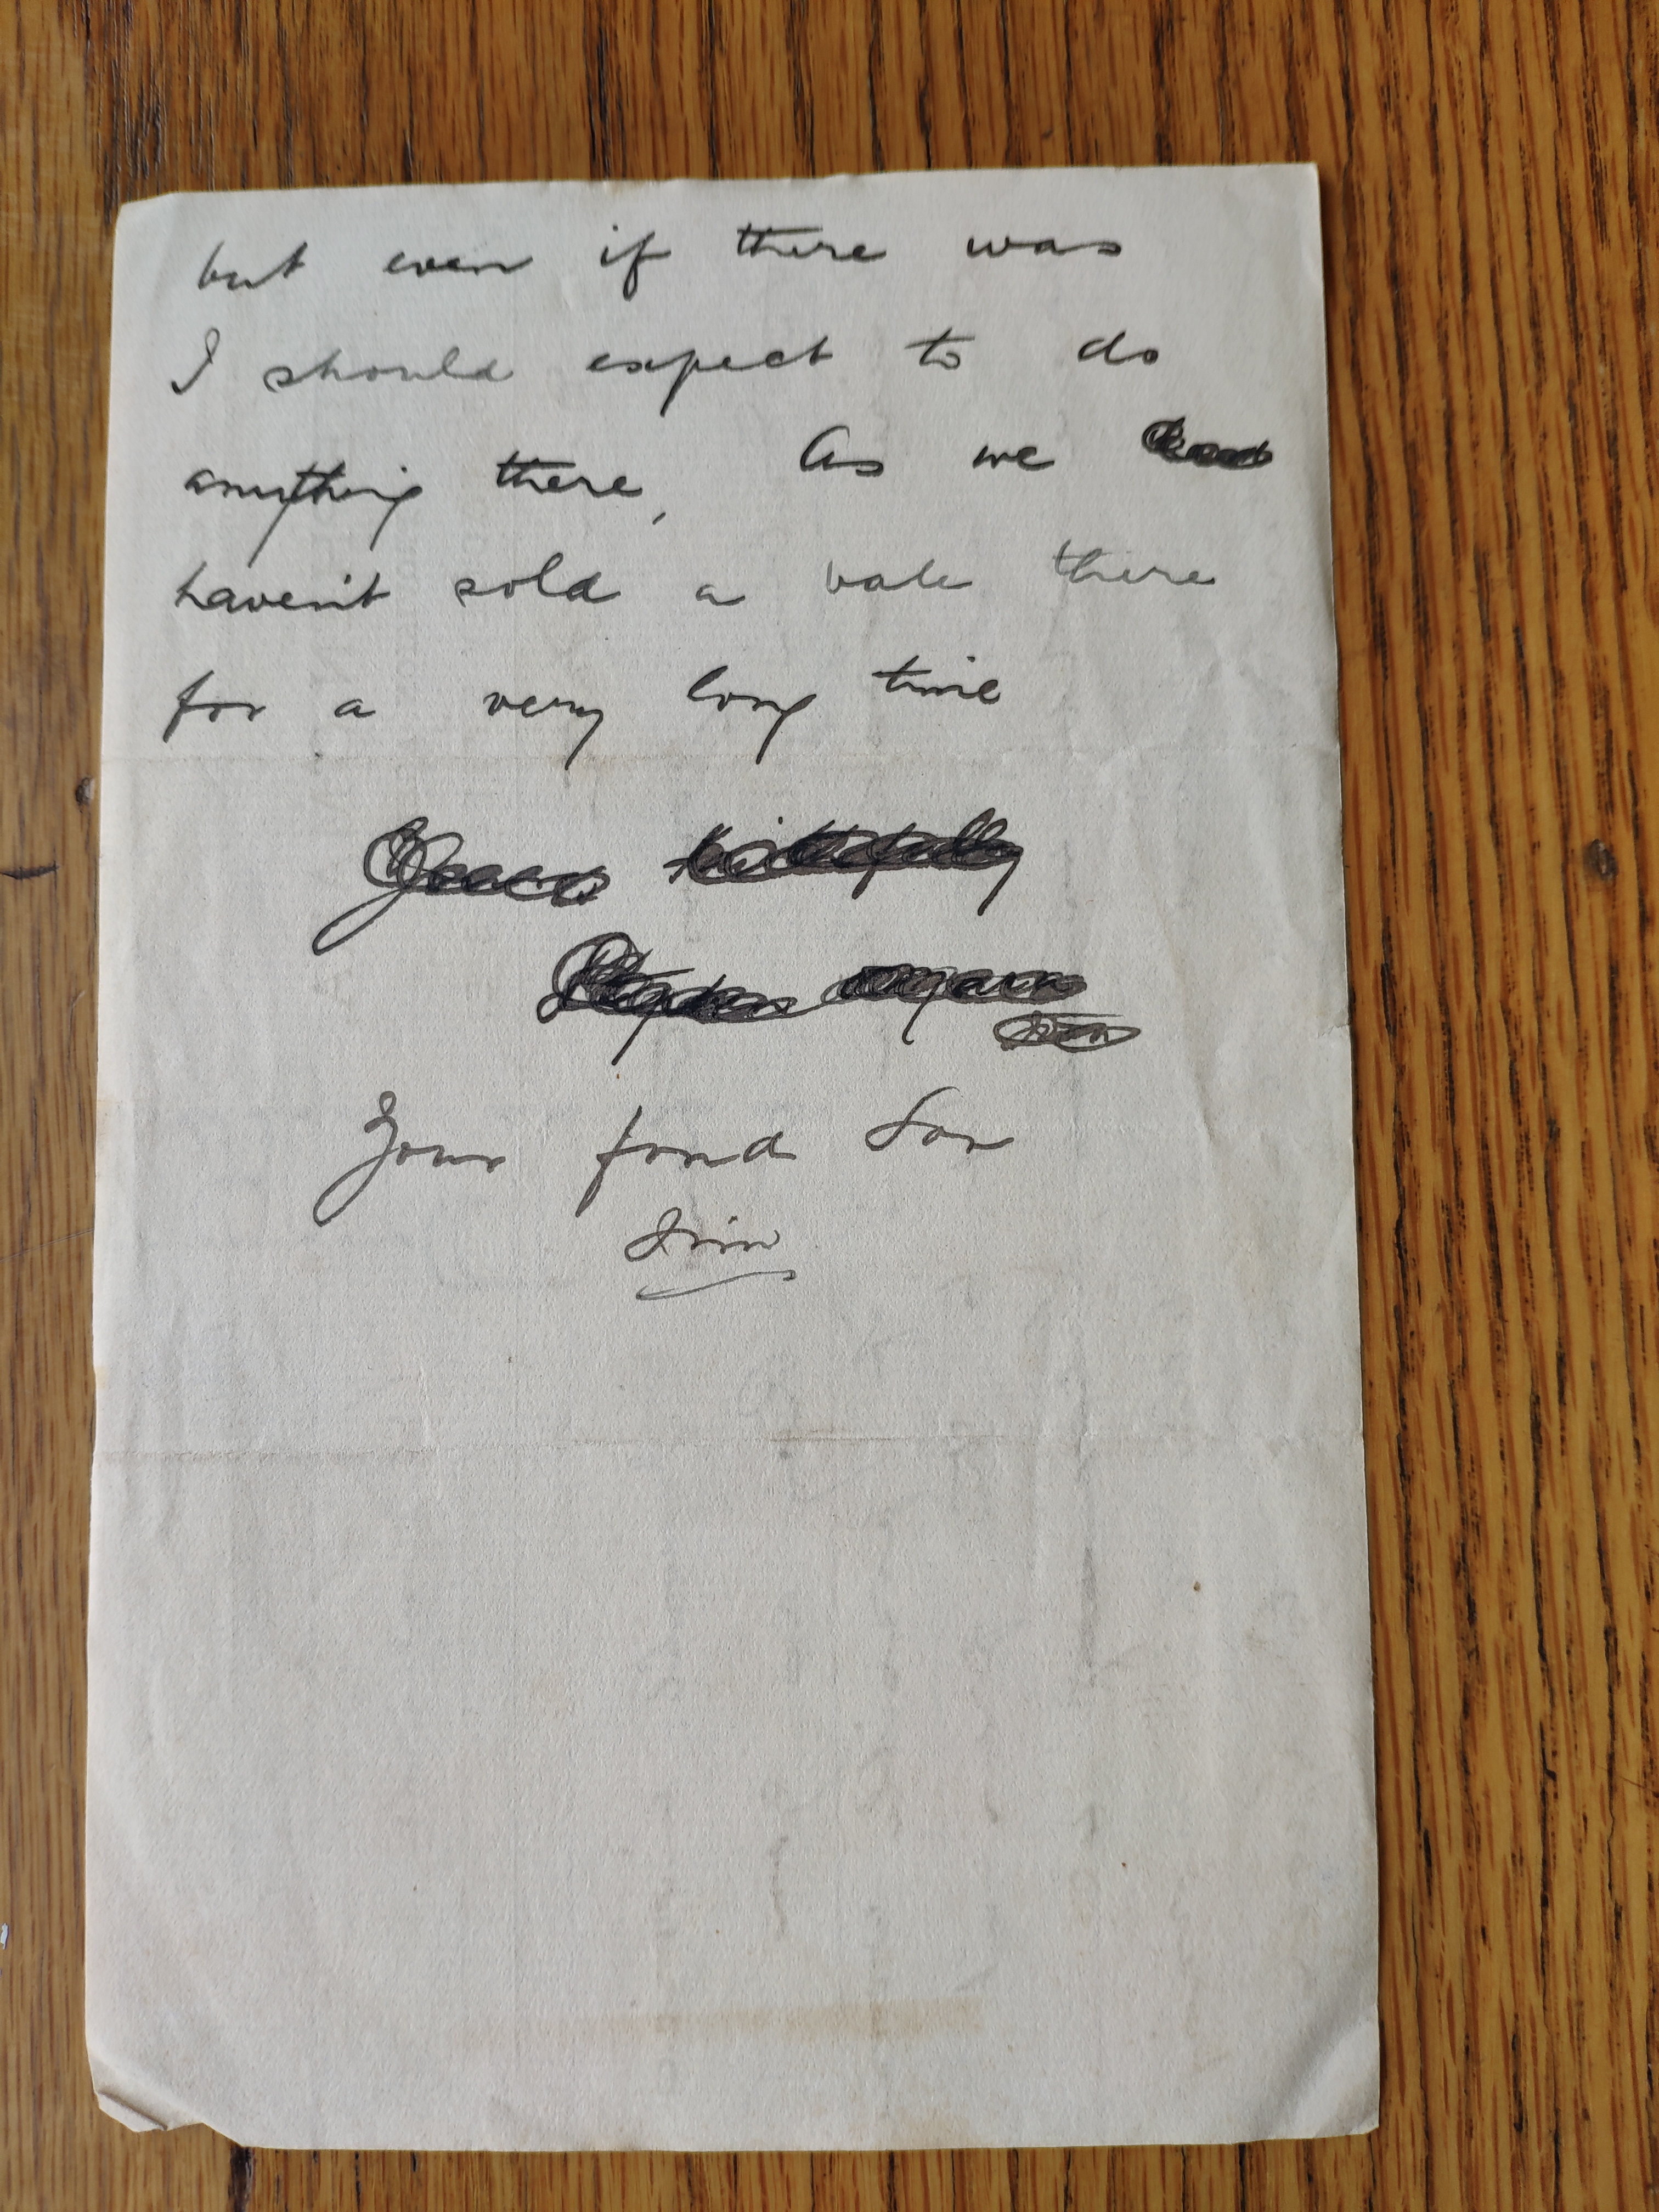 but even if there was
I should expect to do
anything there, As we
haven't sold a bale there
for a very long time
Your fond Son
Jim